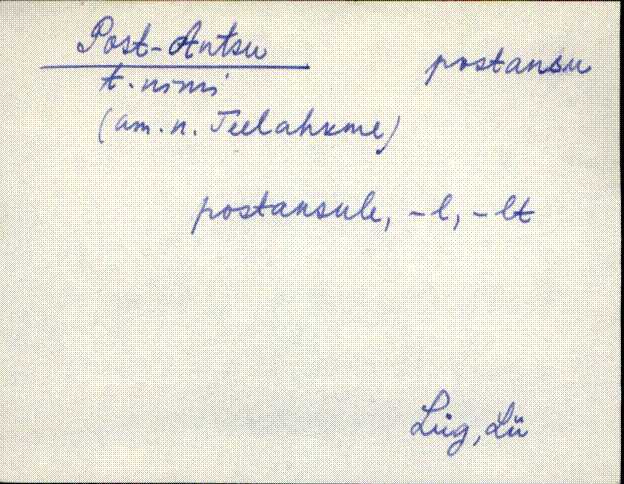 Post-Antsu postansu
t. nimi
(am. n. Teelahkme)
postansule, -l, -lt
Lüg, Lü